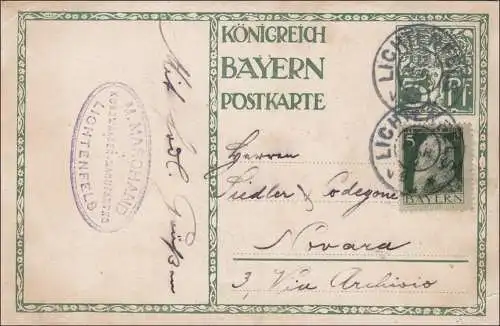 KÖNIGREICH
BAYERN
POSTKARTE
5 Pf
LICHTENFELS
LICHTENFELS
5
BAYERN
M. MARCHAND
LICHTENFELS
Mit Grüßen
Herren
Siedler Codegone
Novara
3, Via Archivio